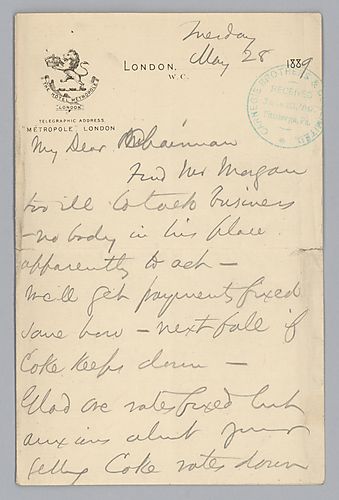 Tuesday
May 28 1889
THE HOTEL METROPOLE
LONDON
LONDON.
W.C.
TELEGRAPHIC ADDRESS
"METROPOLE" LONDON
CARNEGIE BROTHERS & CO. LIMITED
RECEIVED
My Dear Chairman
Find Mr Morgan
too ill to talk business
- no body in his place
apparently to act -
We'll get payments fixed
some how - next fall if
Coke keeps down -
Glad ore rates fixed but
anxious about your
getting Coke rates down